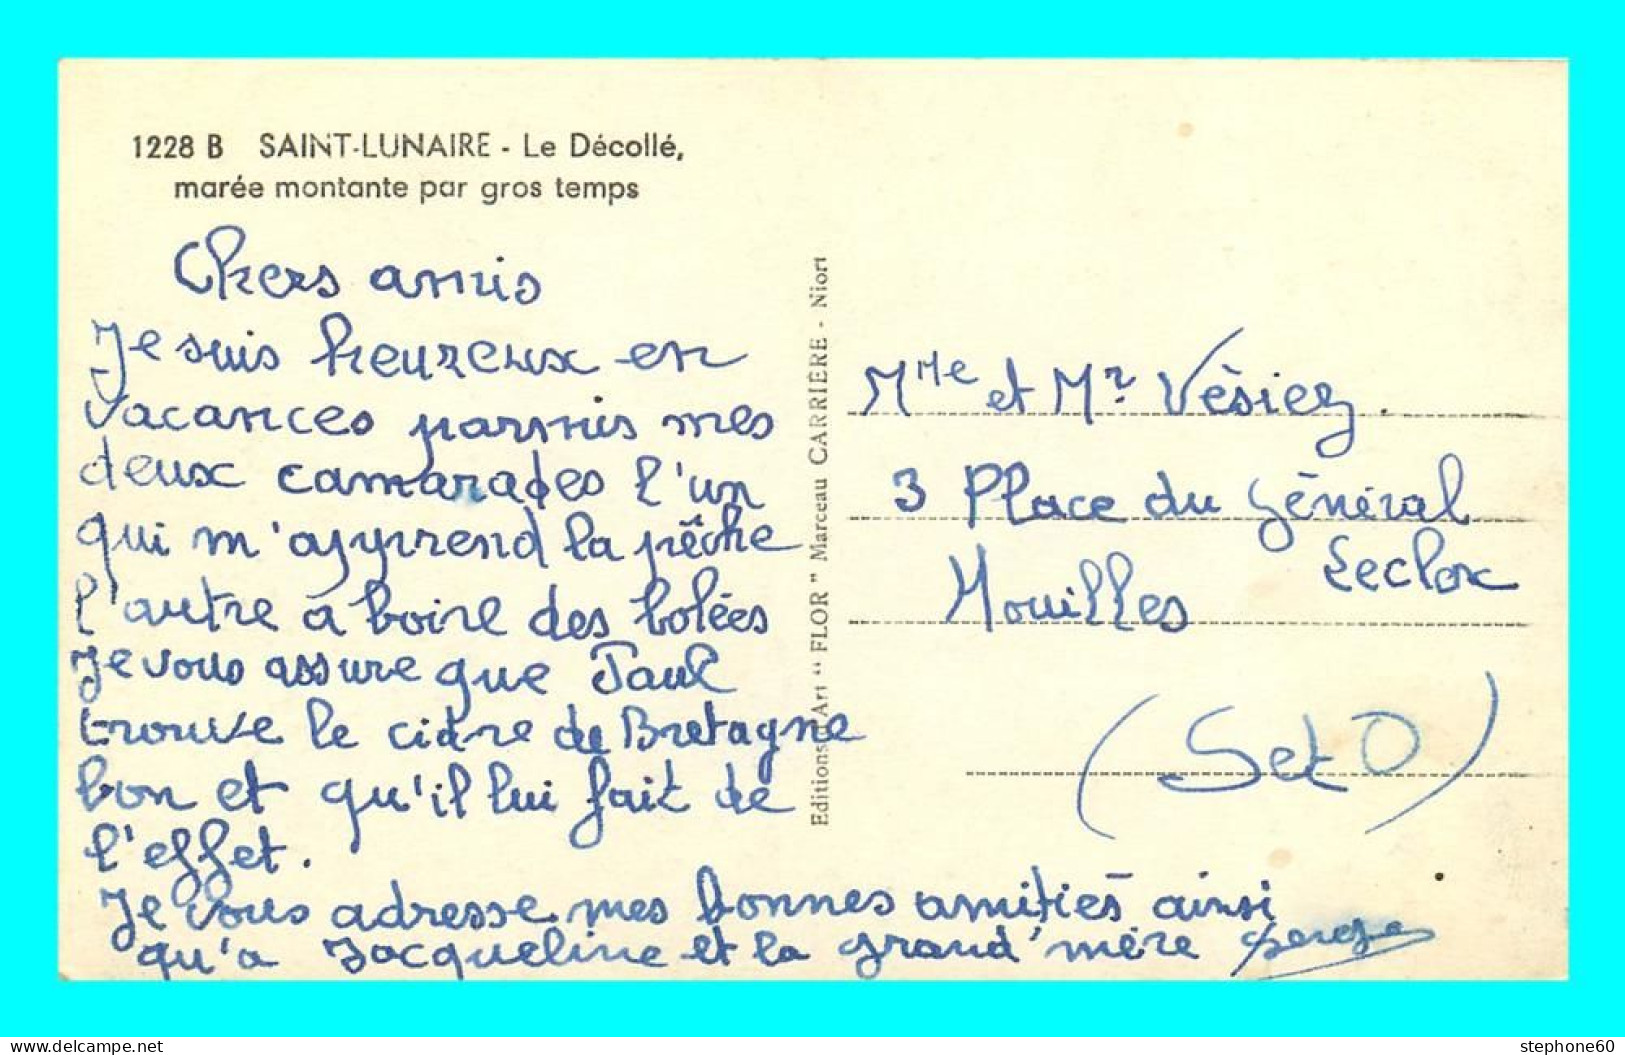 1228 B SAINT-LUNAIRE - Le Décollé,
marée montante par gros temps
Chers amis
Je suis heureux en
vacances parmis mes
deux camarades l'un
qui m'apprend la pêche
l'autre à boire des bolées
Je vous assure que Paul
trouve le cidre de Bretagne
bon et qu'il lui fait de
l'effet.
Je vous adresse mes bonnes amitiés ainsi
qu'a Jacqueline et la grand'mère Serge
Editions d'Art "FLOR" Marceau CARRIÈRE - Niort
Mme et Mr Vésiez.
3 Place du Général
Leclerc
Houilles
(S et O)
www.delcampe.net
stephone60